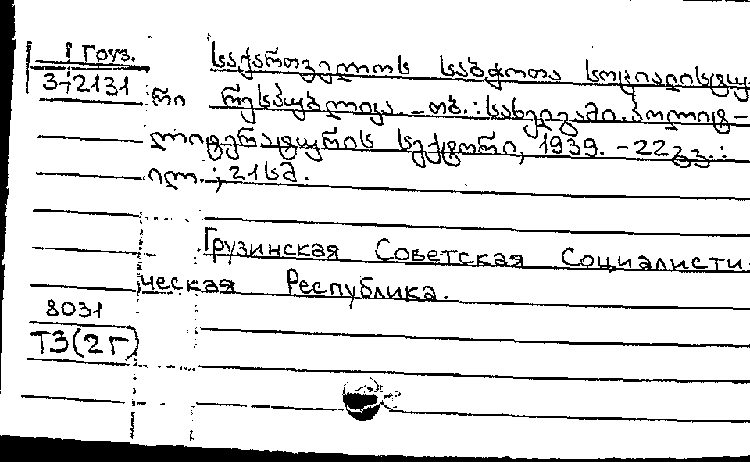 1 Груз.
3-2131
საქართველოს საბჭოთა სოციალისტუ
რი რესპუბლიკა. - თბ.: სახელგამი. პოლიტ-
ლიტერატურის სექტორი, 1939. - 22 გვ.:
ილ.; 21 სმ.
Грузинская Советская Социалисти-
ческая Республика.
8031
ТЗ(2Г)